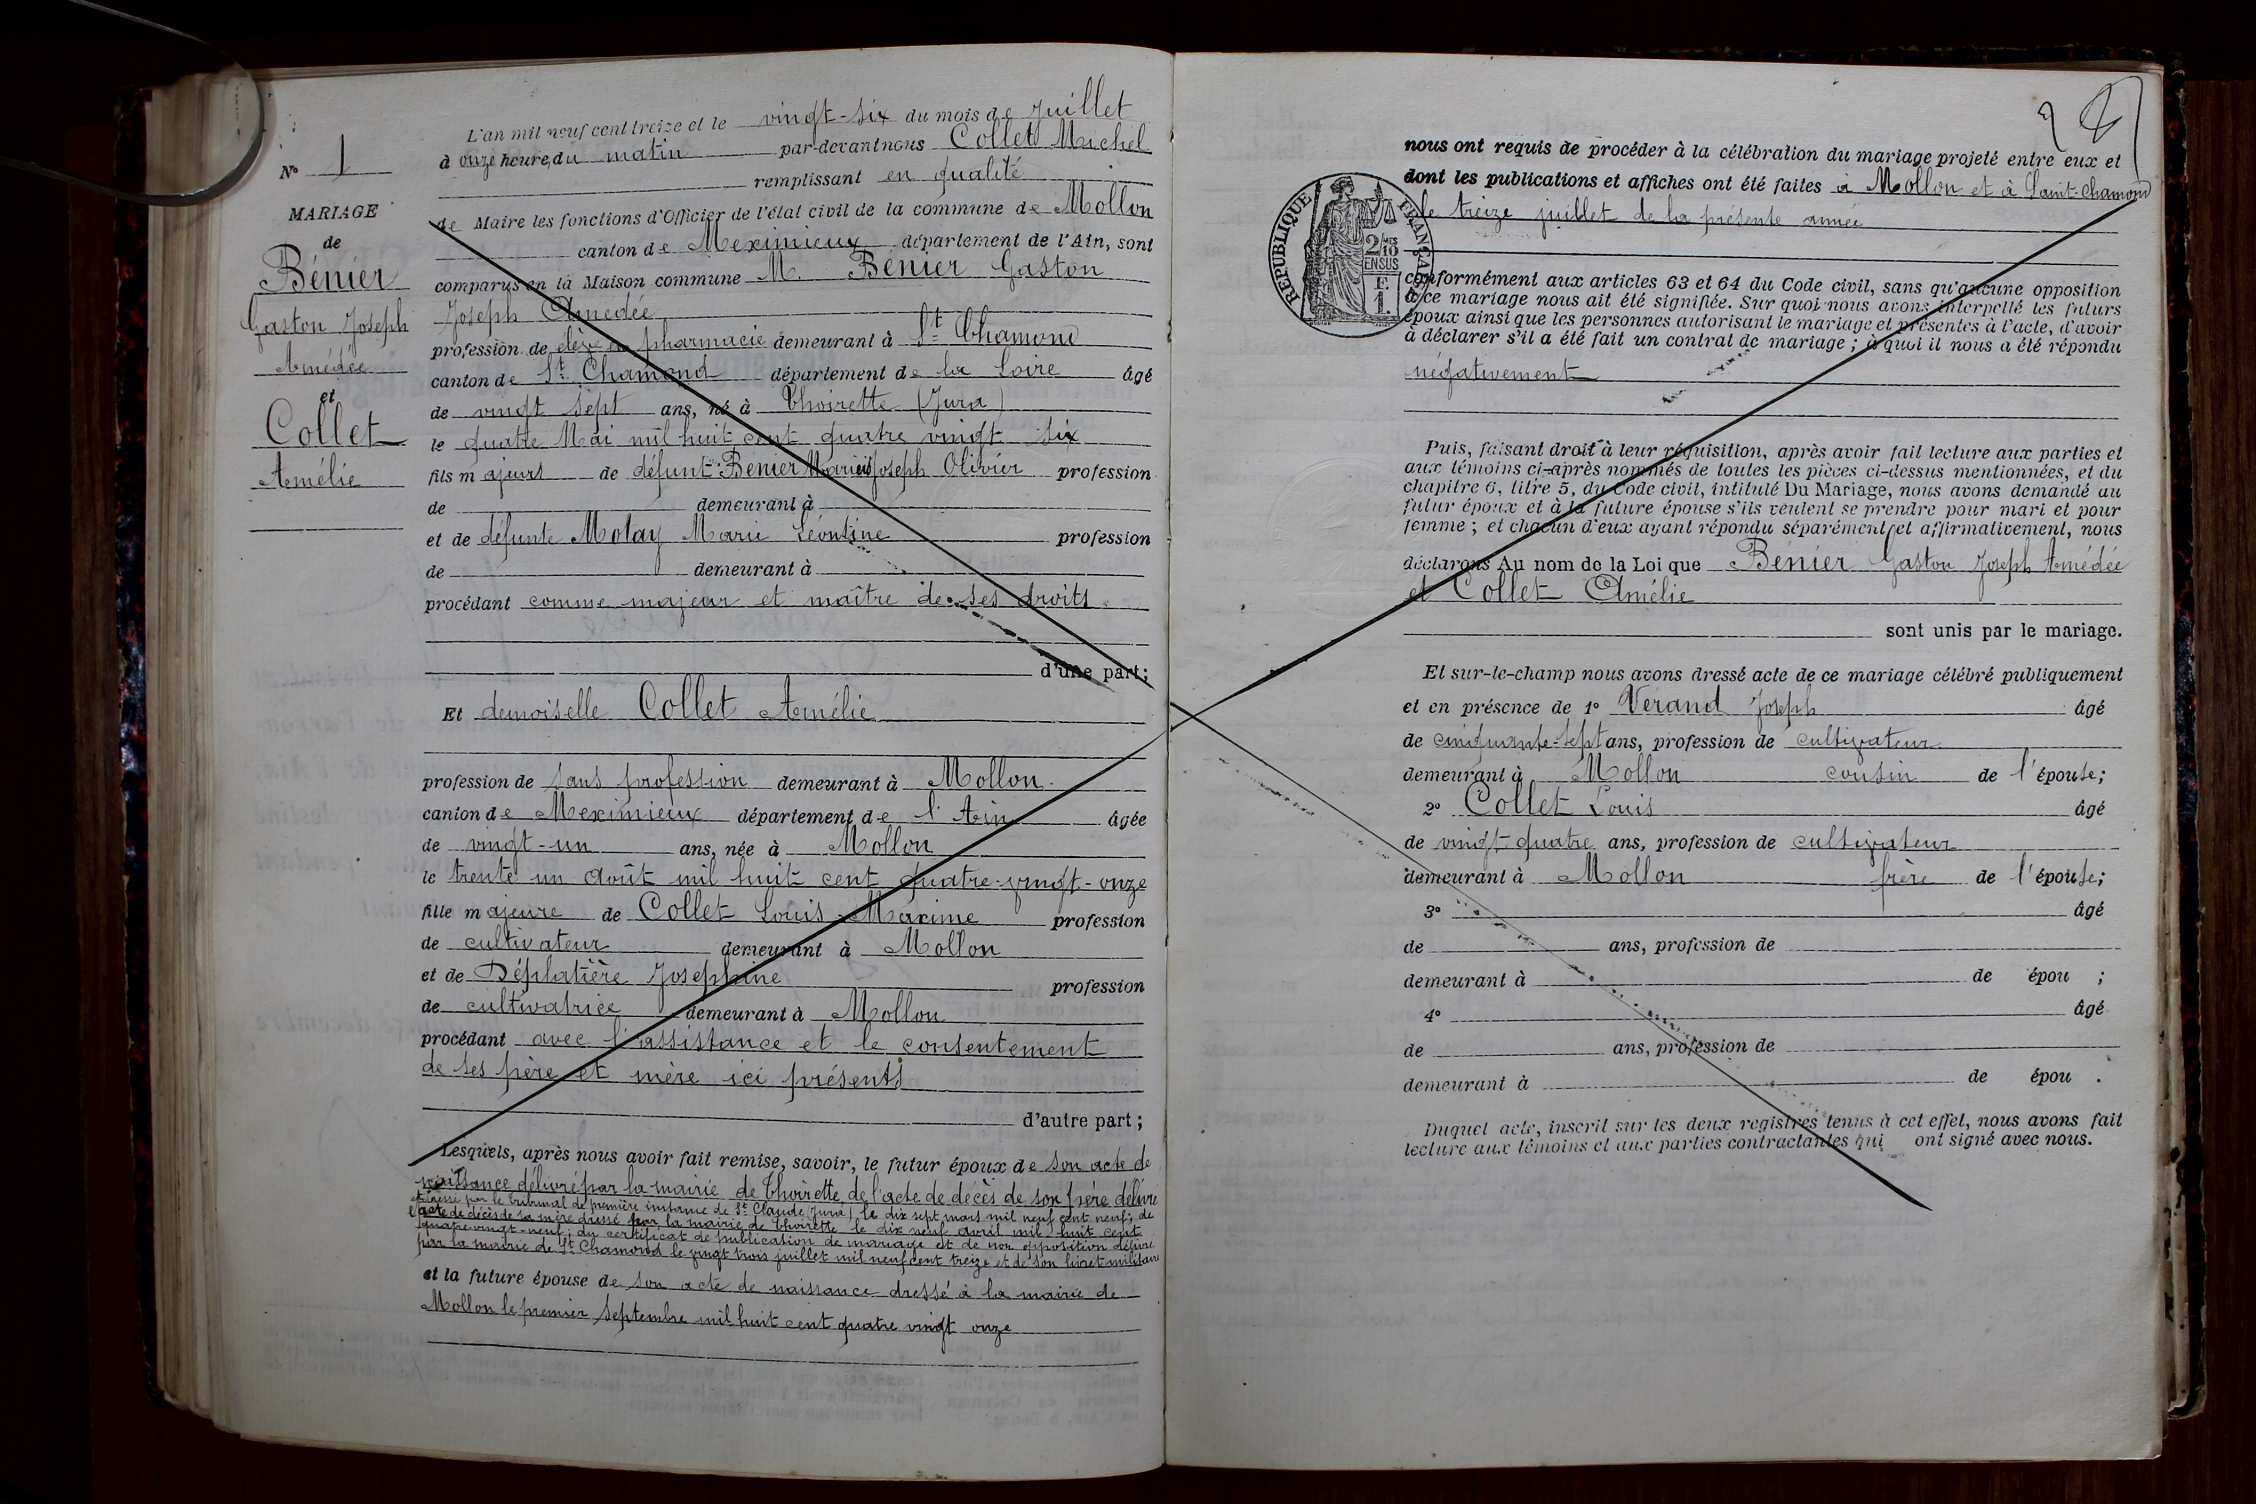 N° 1
MARIAGE
de
Bénier
Gaston Joseph
Amédée
et
Collet
Amélie
L'an mil neuf cent treize et le vingt-six du mois de Juillet
à onze heures du matin par-devant nous Collet Michel
remplissant en qualité
de Maire les fonctions d'Officier de l'état civil de la commune de Mollon
canton de Meximieux département de l'Ain, sont
comparus en la Maison commune M. Benier Gaston
Joseph Amédée
profession de elève en pharmacie demeurant à St Chamond
canton de St Chamond département de la Loire âgé
de vingt sept ans, né à Thoirette (Jura)
le quatre Mai mil huit cent quatre vingt six
fils majeur de défunt Benier Marie Joseph Olivier profession
de demeurant à
et de défunte Molay Marie Léontine profession
de demeurant à
procédant comme majeur et maître de ses droits
d'une part;
Et demoiselle Collet Amélie
profession de sans profession demeurant à Mollon
canton de Meximieux département de l'Ain âgée
de vingt-un ans, née à Mollon
le trente un août mil huit cent quatre-vingt-onze
fille majeure de Collet Louis Maxime profession
de cultivateur demeurant à Mollon
et de Déplatière Josephine profession
de cultivatrice demeurant à Mollon
procédant avec l'assistance et le consentement
de ses père et mère ici présents
d'autre part;
Lesquels, après nous avoir fait remise, savoir, le futur époux de son acte de
naissance délivré par la mairie de Thoirette, de l'acte de décès de son père délivré
et dressé par le tribunal de première instance de St Claude (Jura) le dix sept mars mil neuf cent neuf; de
l'acte de décès de sa mère dressé par la mairie de Thoirette le dix neuf avril mil huit cent
quatre-vingt-neuf; du certificat de publication de mariage et de non opposition délivré
par la mairie de St Chamond le vingt trois juillet mil neuf cent treize et de son livret militaire
et la future épouse de son acte de naissance dressé à la mairie de
Mollon le premier septembre mil huit cent quatre vingt onze
nous ont requis de procéder à la célébration du mariage projeté entre eux et
dont les publications et affiches ont été faites à Mollon et à Saint-Chamond
le treize juillet de la présente année
RÉPUBLIQUE FRANÇAISE
2/10
EN SUS
F.
1.
conformément aux articles 63 et 64 du Code civil, sans qu'aucune opposition
à ce mariage nous ait été signifiée. Sur quoi nous avons interpellé les futurs
époux ainsi que les personnes autorisant le mariage et présentes à l'acte, d'avoir
à déclarer s'il a été fait un contrat de mariage; à quoi il nous a été répondu
négativement
Puis, faisant droit à leur réquisition, après avoir fait lecture aux parties et
aux témoins ci-après nommés de toutes les pièces ci-dessus mentionnées, et du
chapitre 6, titre 5, du Code civil, intitulé Du Mariage, nous avons demandé au
futur époux et à la future épouse s'ils veulent se prendre pour mari et pour
femme; et chacun d'eux ayant répondu séparément et affirmativement, nous
déclarons Au nom de la Loi que Benier Gaston Joseph Amédée
et Collet Amélie
sont unis par le mariage.
Et sur-le-champ nous avons dressé acte de ce mariage célébré publiquement
et en présence de 1° Verand Joseph âgé
de cinquante-sept ans, profession de cultivateur
demeurant à Mollon cousin de l'épouse;
2° Collet Louis âgé
de vingt quatre ans, profession de cultivateur
demeurant à Mollon frère de l'épouse;
3° âgé
de ans, profession de
demeurant à de épou ;
4° âgé
de ans, profession de
demeurant à de épou .
Duquel acte, inscrit sur les deux registres tenus à cet effet, nous avons fait
lecture aux témoins et aux parties contractantes qui ont signé avec nous.